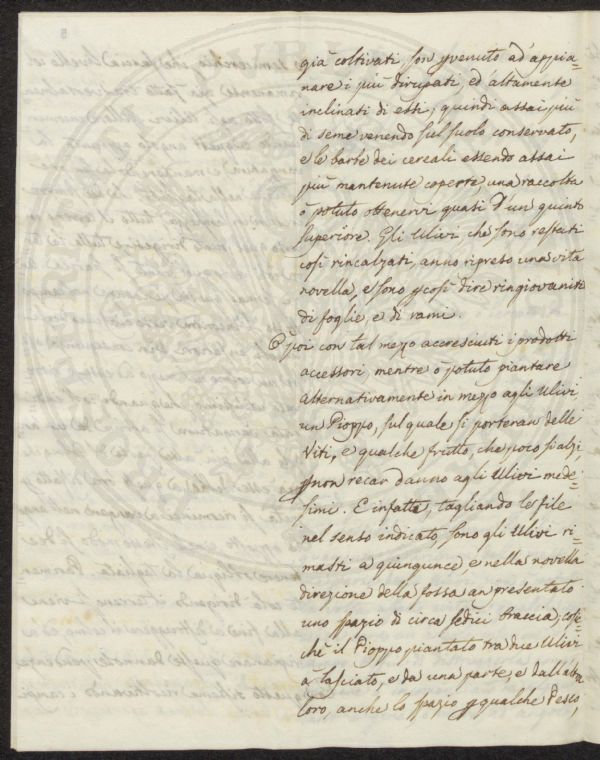 già coltivati, son pvenuto ad appia=
nare i più dirupati, ed altamente
inclinati di essi, quindi assai più
di seme venendo sul suolo conservato,
e le barbe dei cereali essendo assai
più mantenute coperte, una raccolta
ò potuto ottenervi quasi d'un quinto
superiore. Gli Ulivi che sono restati
così rincalzati, anno ripreso una vita
novella, e sono p così dire ringiovaniti
di foglie, e di rami.
ò poi con tal mezzo accresciuti i prodotti
accessori mentre ò potuto piantare
alternativamente in mezzo agli Ulivi
un Pioppo, sul quale si porteran delle
Viti, e qualche frutto, che poco si alzi
p non recar danno agli Ulivi mede=
simi. E infatti, tagliando le file
nel senso indicato, sono gli Ulivi ri=
masti a quinqunce e nella novella
direzione della fossa an presentato
uno spazio di circa sedici braccia, cosic=
chè il Pioppo piantato tra due Ulivi
à lasciato, e da una parte, e dall'altra
loro, anche lo spazio p qualche Pesco,